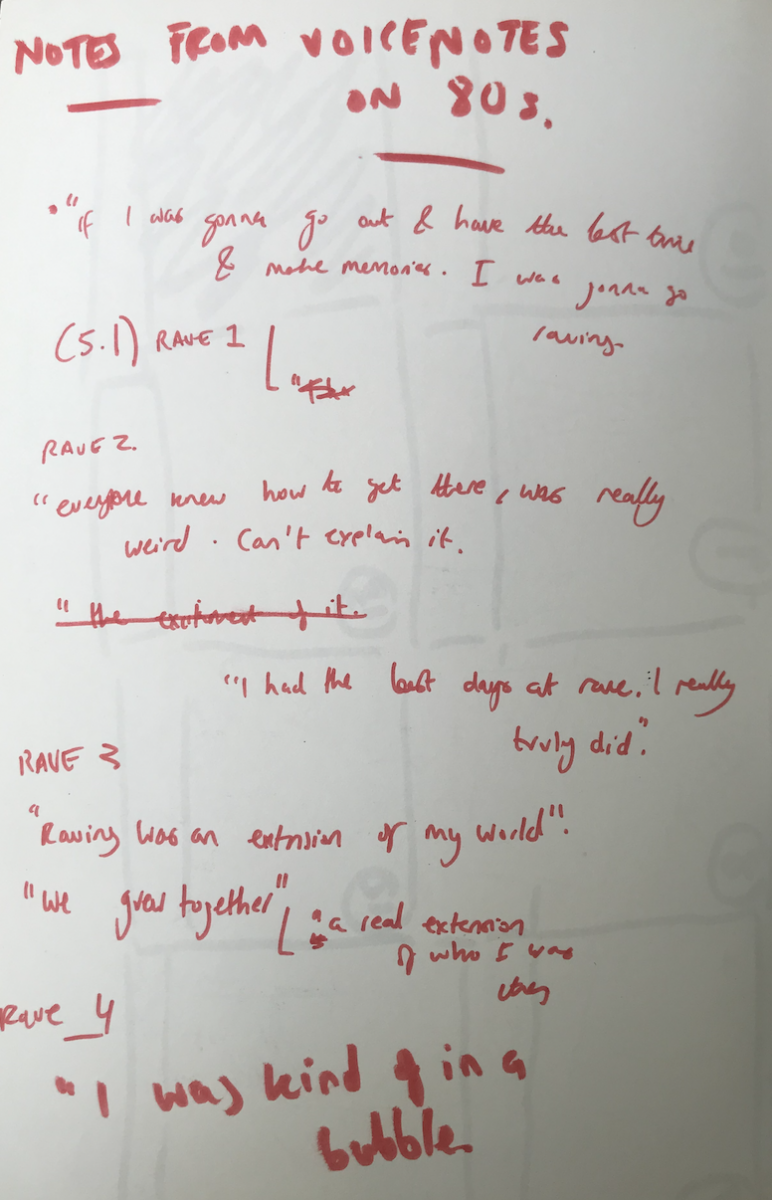 NOTES FROM VOICENOTES
ON 80s.
• "if I was gonna go out & have the best time
& make memories. I was gonna go
raving.
(5.1) RAVE 1
"
RAVE 2.
"everyone knew how to get there, was really
weird. Can't explain it.
" the excitment of it.
"I had the best days at rave. I really
truly did".
RAVE 3
"Raving was an extension of my world".
"We grew together"
"a real extension
of who I was
Rave 4
"I was kind of in a
bubble